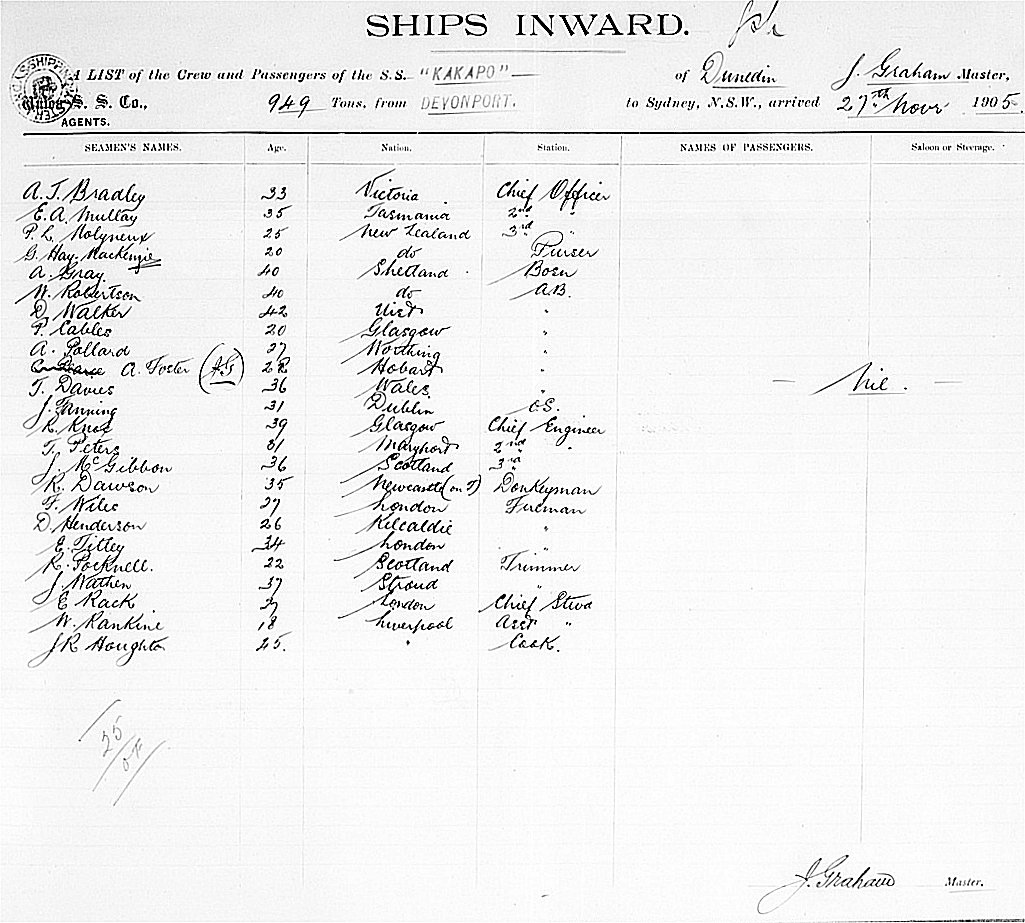 SHIPS INWARD.
A LIST of the Crew and Passengers of the S.S. "KAKAPO" of Dunedin J. Graham Master,
Union S. S. Co., 949 Tons, from DEVONPORT. to Sydney, N.S.W., arrived 27th Novr 1905.
AGENTS.
SEAMEN'S NAMES. Age. Nation. Station. NAMES OF PASSENGERS. Saloon or Steerage.
A. J. Bradley 33 Victoria Chief Officer
E. A. Mullay 35 Tasmania 2nd "
P. L. Molyneux 25 New Zealand 3rd "
G. Hay-Mackenzie 20 do Purser
A. Gray 40 Shetland Bosn
W. Robertson 40 do A.B.
D. Walker 42 Uist "
P. Cables 20 Glasgow "
A. Pollard 27 Worthing "
A. Foster (J.G) 28 Hobart "
T. Davies 36 Wales "
J. Fanning 31 Dublin O.S.
R. Knox 39 Glasgow Chief Engineer
T. Peters 31 Maryport 2nd "
J. McGibbon 36 Scotland 3rd "
R. Dawson 35 Newcastle (on T) Donkeyman
F. Wiles 27 London Fireman
D. Henderson 26 Kilcaldie "
E. Titley 34 London "
R. Pocknell. 22 Scotland Trimmer
J. Wathen 37 Stroud "
E Rack 37 London Chief Stwd
W. Rankine 18 Liverpool Asst "
J R Houghton 25. " Cook.
— Nil. —
25
J. Graham Master.